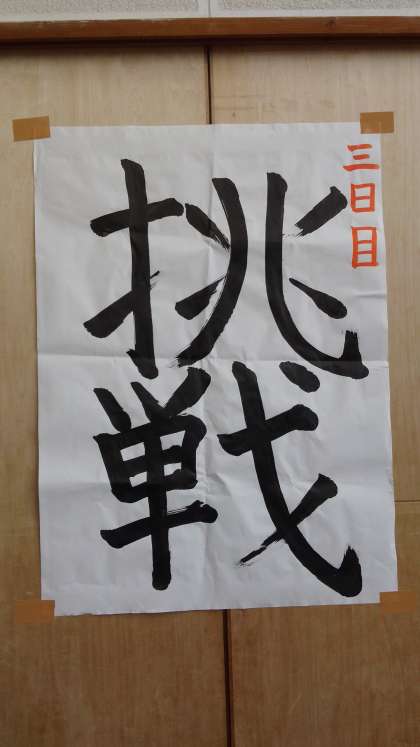 三日目
挑戦